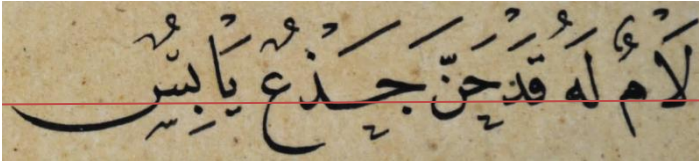 لَامٌ لَهُ قَدْ حَنَّ جَذْعٌ يَابِسٌ